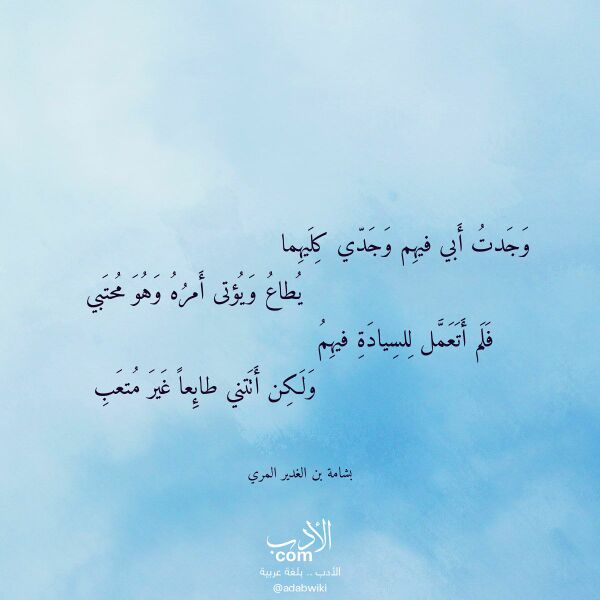 وَجَدتُ أَبي فيهِم وَجَدّي كِلَيهِما
يُطاعُ وَيُؤتى أَمرُهُ وَهُوَ مُحتَبي
فَلَم أَتَعَمَّل لِلسِيادَةِ فيهِمُ
وَلَكِن أَتَتني طائِعاً غَيرَ مُتعَبِ
بشامة بن الغدير المري
الأدب
com
الأدب .. بلغة عربية
@adabwiki